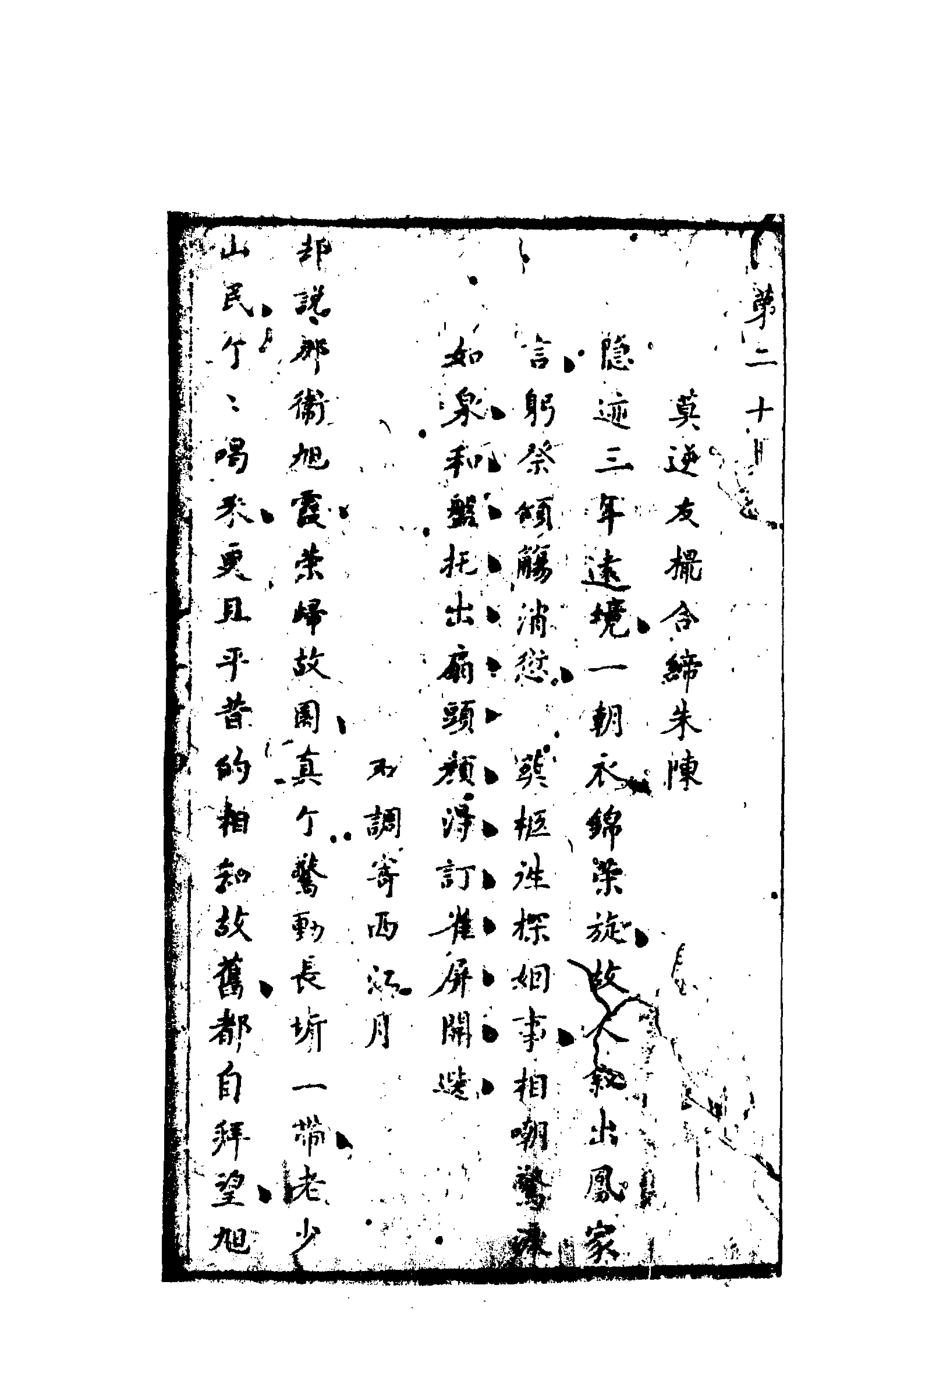 第二十回
莫逆友撮合締朱陳
隐迹三年遠境一朝衣錦荣旋故人叙出鳳家
言躬祭傾觴消愆 巽柩诖探姻事相嘲驚涷
如泉和盤托出扇頭顏淨訂雀屏開選
右調寄西江月
却說那衛旭霞荣歸故園真个驚動長圻一帶老少
山民个〻喝釆更且平昔的相知故舊都自拜望旭